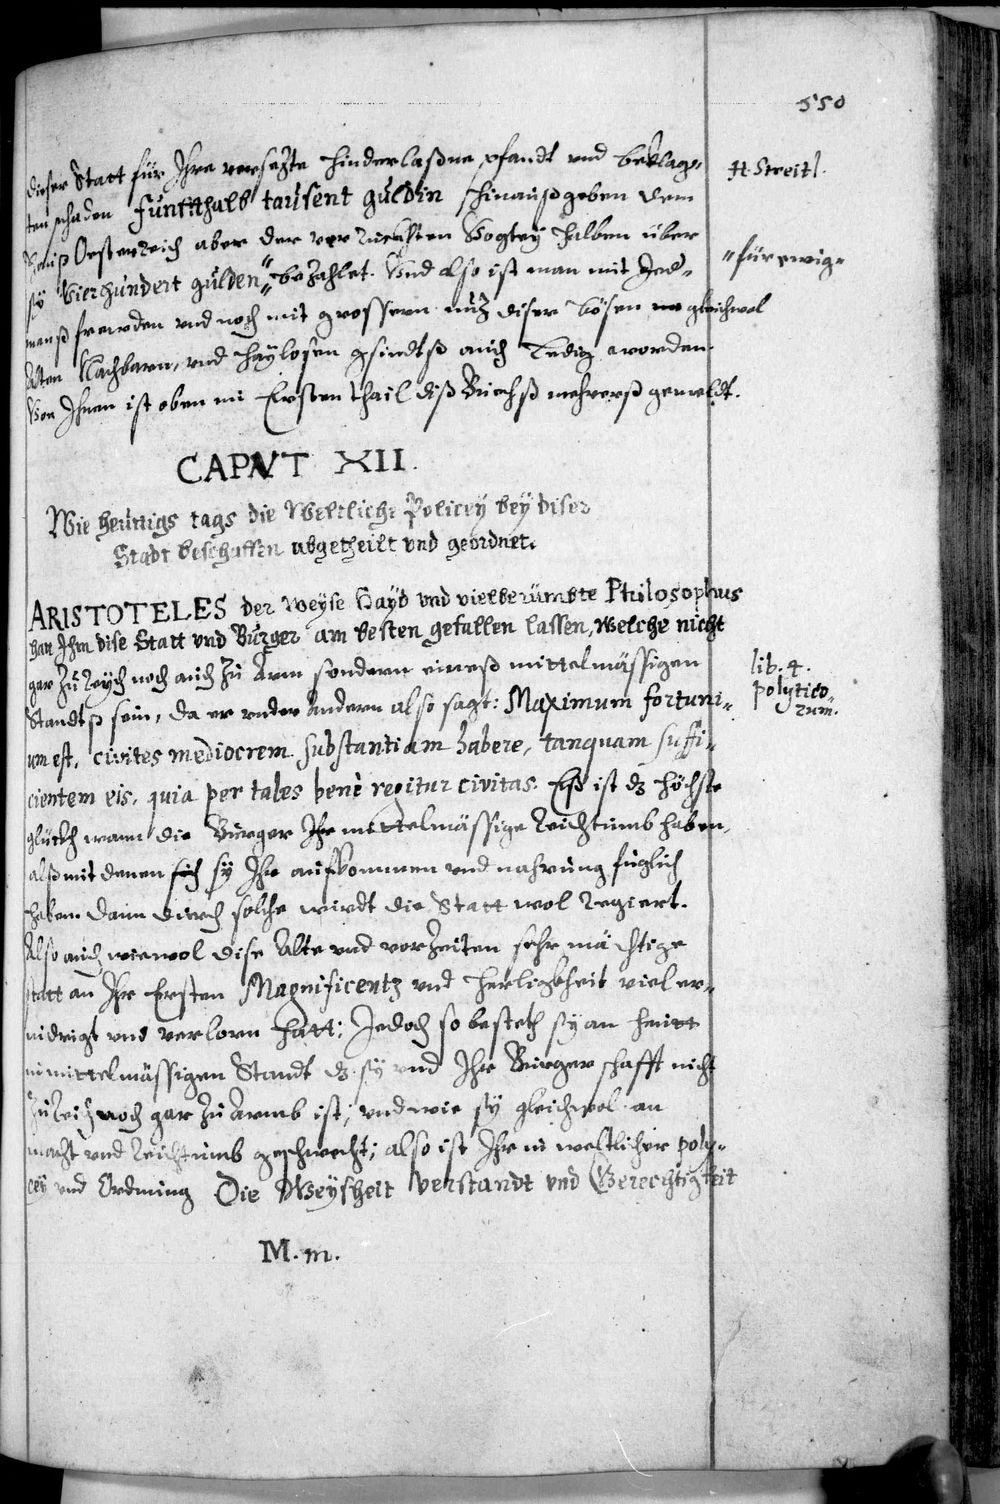 550
diser Statt für Ihre versezte hinderlaßne pfandt und beklag-
ten schaden funffthalb tausent guldin hinaußgeben dem
Hauß Oesterreich aber der Vogteÿ halben über
sÿ vierhundert gulden bezahlet. Und also ist man mit Jed-
manß frewden und noch mit grossern nuz diser bösen gleichwol
Alten Nachbarn, und haylosen gsindtß auch ledig worden.
Von Ihnen ist oben im Ersten thail diß Buechß mehrerß gemeldt.
H Streitl.
"für ewig"
CAPVT XII.
Wie heuttigs tags die Weltliche Policeÿ beÿ diser
Stadt beschaffen abgetheilt und geordnet.
ARISTOTELES der weÿse Haÿd und vielberümbte Philosophus
hat Ihm dise Statt und Burger am besten gefallen lassen, welche nicht
gar zu reych noch auch zu Arm sondern eineß mittelmässigen
Standtß sein, da er under andern also sagt: Maximum fortuni-
um est, civites mediocrem substantiam habere, tanquam suffi-
cientem eis, quia per tales benè regitur civitas. Eß ist dz höchste
glückh wann die Burger Ihr mittelmässige Reichtumb haben,
alß mit denen sÿ Ihr aufkommen und nahrung fuglich
haben dann durch solche wirdt die Statt wol Regiert.
Also auch wiewol dise Alte und vorzeiten sehr mächtige
statt an Ihr Ersten Magnificentz und herligkheit viel er-
nidrigt und verlorn hatt; Jedoch so besteth sÿ an heutt
in mittelmässigen Standt dz sÿ und Ihr Burgerschafft nicht
zu reich noch gar zu Armb ist; und wie sÿ gleichwol an
macht und Reichtumb geschwecht; also ist Ihr in weltlicher poly-
ceÿ und Ordnung Die Weÿsheit verstandt und Gerechtigkeit
lib. 4.
polytico-
rum.
M. m.